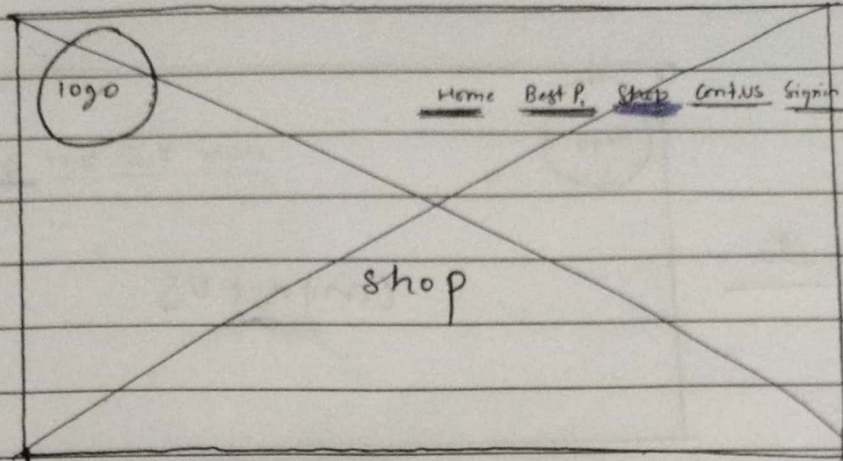 logo
Home Best P. Shop Cont.us Signin
shop